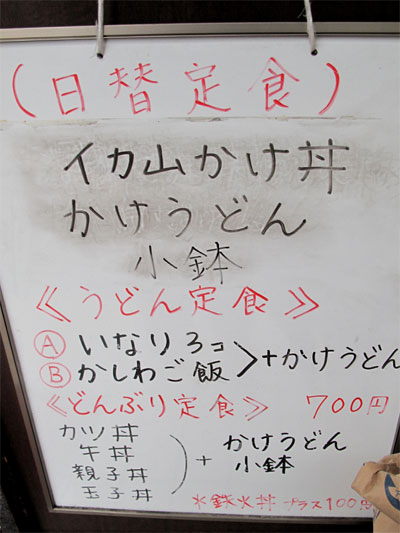 (日替定食)
イカ山かけ丼
かけうどん
小鉢
《うどん定食》
Ⓐ いなり3コ
Ⓑ かしわご飯
+かけうどん
《どんぶり定食》 700円
カツ丼
牛丼
親子丼
玉子丼
+ かけうどん
小鉢
プラス100円